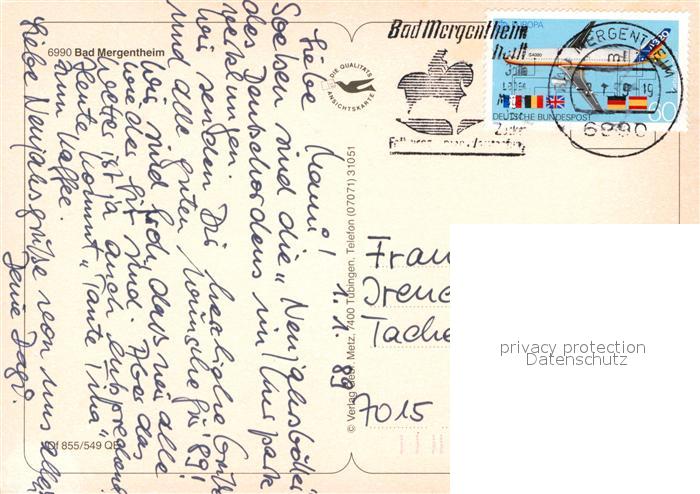 6990 Bad Mergentheim
DIE QUALITÄTS
ANSICHTSKARTE
Bad Mergentheim
MERGENTHEIM 1
6990
EUROPA
A320
DEUTSCHE BUNDESPOST
60
1.1.89
Liebe Mami!
Soeben sind die „Neujahrsböller“
des Deutschordens im Kurpark
verklungen.
Wir senden Dir herzliche Grüße
und alle guten Wünsche für '89!
Wir sind froh, dass wir alle
wieder fit sind. Aber das
Wetter ist ja auch entspredend.
Heute kommt „Tante Irma“
zum Kaffee.
Liebe Neujahrsgrüße von uns allen
Deine Dago.
© Verlag Gebr. Metz, 7400 Tübingen, Telefon (07071) 31051
Frau
Irene
Tache
7015
privacy protection
Datenschutz
Of 855/549 QE